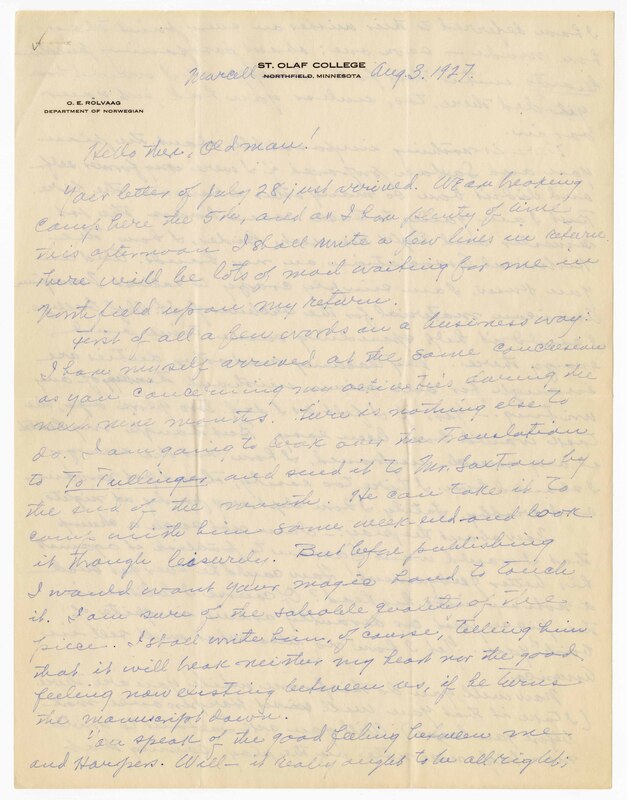 ST. OLAF COLLEGE
NORTHFIELD, MINNESOTA
Marcell Aug. 3. 1927.
O. E. RÖLVAAG
DEPARTMENT OF NORWEGIAN
Hello there, Old man!
Your letter of July 28 just arrived. We are breaking
camp here the 5th, and as I have plenty of time
this afternoon I shall write a few lines in return.
There will be lots of mail waiting for me in
Northfield upon my return.
First of all a few words in a business way:
I have myself arrived at the same conclusion
as you concerning my activities during the
next nine months. There is nothing else to
do. I am going to look over the translation
to To Tullinger and send it to Mr. Saxton by
the end of the month. He can take it to
camp with him some week-end and look
it through leisurely. But before publishing
I would want your magic hand to touch
it. I am sure of the saleable qualities of the
piece. I shall write him, of course, telling him
that it will break neither my heart nor the good
feeling now existing between us, if he turns
the manuscript down.
speak of the good feeling between me
and Harpers. Well — it really ought to be all right;